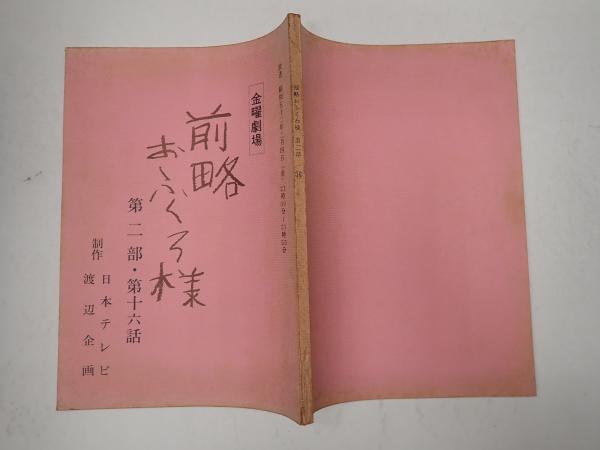 金曜劇場
前略
おふくろ様
第二部・第十六話
制作
日本テレビ
渡辺企画
前略おふくろ様 第二部 16